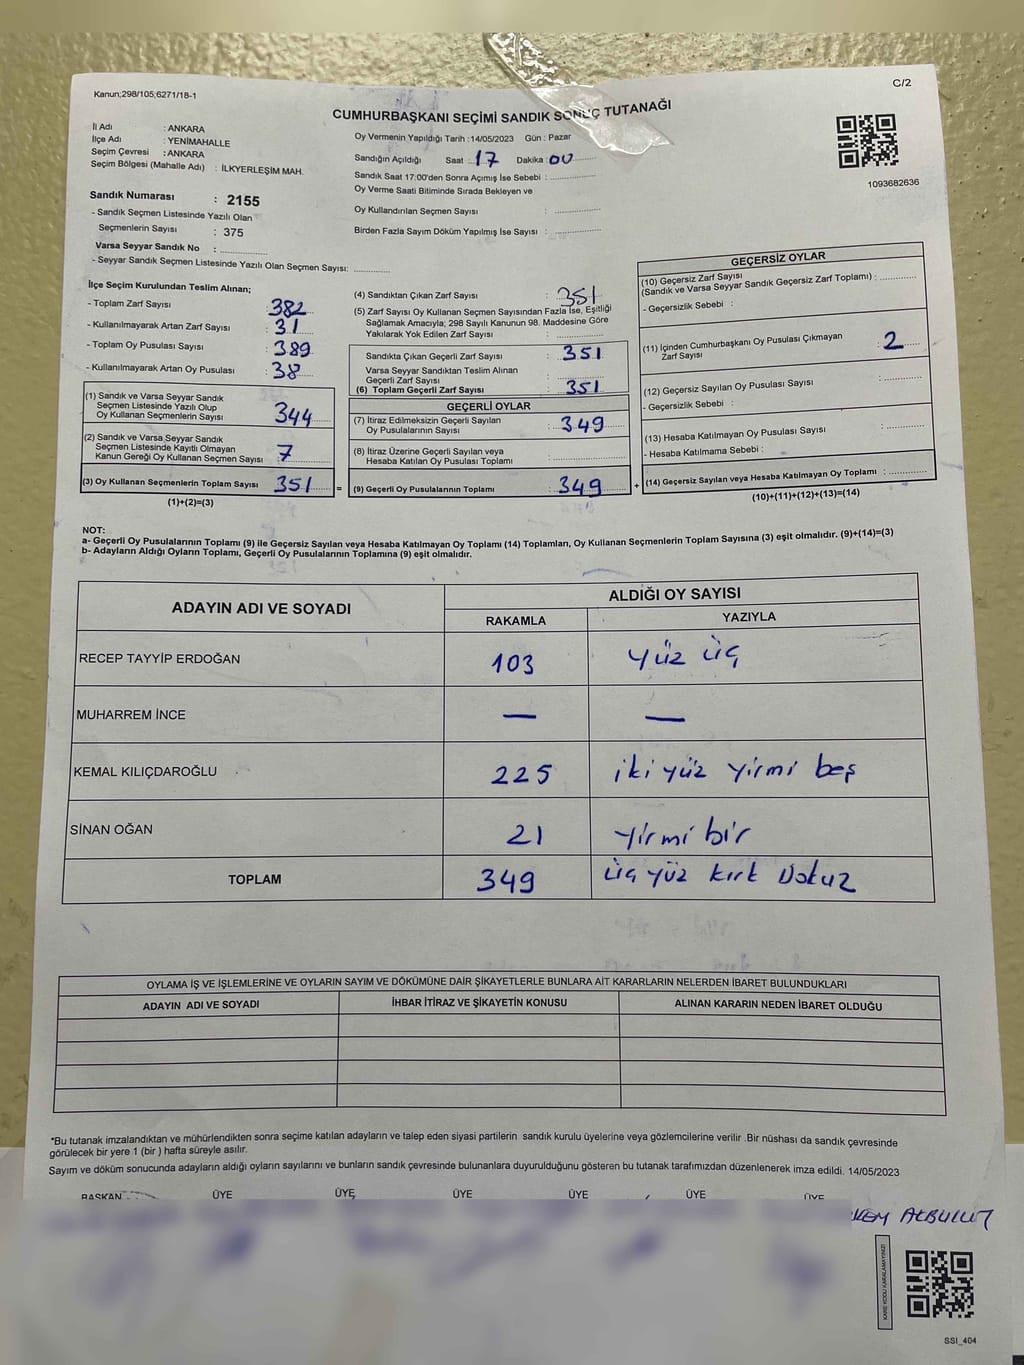 Kanun;298/105;6271/18-1
C/2
CUMHURBAŞKANI SEÇİMİ SANDIK SONUÇ TUTANAĞI
İl Adı : ANKARA
İlçe Adı : YENİMAHALLE
Seçim Çevresi : ANKARA
Seçim Bölgesi (Mahalle Adı) : İLKYERLEŞİM MAH.
Sandık Numarası : 2155
- Sandık Seçmen Listesinde Yazılı Olan
Seçmenlerin Sayısı : 375
Varsa Seyyar Sandık No :
- Seyyar Sandık Seçmen Listesinde Yazılı Olan Seçmen Sayısı:
Oy Vermenin Yapıldığı Tarih :14/05/2023 Gün : Pazar
Sandığın Açıldığı Saat : 17 Dakika : 00
Sandık Saat 17:00'den Sonra Açımış İse Sebebi :
Oy Verme Saati Bitiminde Sırada Bekleyen ve
Oy Kullandırılan Seçmen Sayısı :
Birden Fazla Sayım Döküm Yapılmış İse Sayısı :
1093682636
İlçe Seçim Kurulundan Teslim Alınan;
- Toplam Zarf Sayısı : 382
- Kullanılmayarak Artan Zarf Sayısı : 31
- Toplam Oy Pusulası Sayısı : 389
- Kullanılmayarak Artan Oy Pusulası : 38
(1) Sandık ve Varsa Seyyar Sandık
Seçmen Listesinde Yazılı Olup
Oy Kullanan Seçmenlerin Sayısı : 344
(2) Sandık ve Varsa Seyyar Sandık
Seçmen Listesinde Kayıtlı Olmayan
Kanun Gereği Oy Kullanan Seçmen Sayısı : 7
(3) Oy Kullanan Seçmenlerin Toplam Sayısı : 351
(1)+(2)=(3)
=
(4) Sandıktan Çıkan Zarf Sayısı : 351
(5) Zarf Sayısı Oy Kullanan Seçmen Sayısından Fazla İse, Eşitliği
Sağlamak Amacıyla; 298 Sayılı Kanunun 98. Maddesine Göre
Yakılarak Yok Edilen Zarf Sayısı :
Sandıkta Çıkan Geçerli Zarf Sayısı : 351
Varsa Seyyar Sandıktan Teslim Alınan
Geçerli Zarf Sayısı :
(6) Toplam Geçerli Zarf Sayısı : 351
GEÇERLİ OYLAR
(7) İtiraz Edilmeksizin Geçerli Sayılan
Oy Pusulalarının Sayısı : 349
(8) İtiraz Üzerine Geçerli Sayılan veya
Hesaba Katılan Oy Pusulası Toplamı :
(9) Geçerli Oy Pusulalarının Toplamı : 349
+
GEÇERSİZ OYLAR
(10) Geçersiz Zarf Sayısı
(Sandık ve Varsa Seyyar Sandık Geçersiz Zarf Toplamı) :
- Geçersizlik Sebebi :
(11) İçinden Cumhurbaşkanı Oy Pusulası Çıkmayan
Zarf Sayısı : 2
(12) Geçersiz Sayılan Oy Pusulası Sayısı :
- Geçersizlik Sebebi :
(13) Hesaba Katılmayan Oy Pusulası Sayısı :
- Hesaba Katılmama Sebebi :
(14) Geçersiz Sayılan veya Hesaba Katılmayan Oy Toplamı :
(10)+(11)+(12)+(13)=(14)
NOT:
a- Geçerli Oy Pusulalarının Toplamı (9) ile Geçersiz Sayılan veya Hesaba Katılmayan Oy Toplamı (14) Toplamları, Oy Kullanan Seçmenlerin Toplam Sayısına (3) eşit olmalıdır. (9)+(14)=(3)
b- Adayların Aldığı Oyların Toplamı, Geçerli Oy Pusulalarının Toplamına (9) eşit olmalıdır.
ADAYIN ADI VE SOYADI
ALDIĞI OY SAYISI
RAKAMLA YAZIYLA
RECEP TAYYİP ERDOĞAN 103 yüz üç
MUHARREM İNCE — —
KEMAL KILIÇDAROĞLU 225 iki yüz yirmi beş
SİNAN OĞAN 21 yirmi bir
TOPLAM 349 üç yüz kırk Dokuz
OYLAMA İŞ VE İŞLEMLERİNE VE OYLARIN SAYIM VE DÖKÜMÜNE DAİR ŞİKAYETLERLE BUNLARA AİT KARARLARIN NELERDEN İBARET BULUNDUKLARI
ADAYIN ADI VE SOYADI İHBAR İTİRAZ VE ŞİKAYETİN KONUSU ALINAN KARARIN NEDEN İBARET OLDUĞU
*Bu tutanak imzalandıktan ve mühürlendikten sonra seçime katılan adayların ve talep eden siyasi partilerin sandık kurulu üyelerine veya gözlemcilerine verilir .Bir nüshası da sandık çevresinde
görülecek bir yere 1 (bir ) hafta süreyle asılır.
Sayım ve döküm sonucunda adayların aldığı oyların sayılarını ve bunların sandık çevresinde bulunanlara duyurulduğunu gösteren bu tutanak tarafımızdan düzenlenerek imza edildi. 14/05/2023
BAŞKAN ÜYE ÜYE ÜYE ÜYE ÜYE ÜYE
AKBULUT
KARE KODU KARALAMAYINIZ!
SSI_404